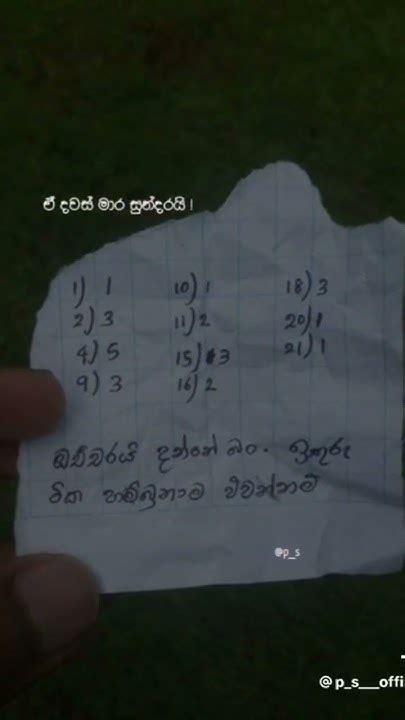 ඒ දවස් මාර සුන්දරයි !
1) 1 10) 1 18) 3
2) 3 11) 2 20) 1
4) 5 15) 3 21) 1
9) 3 16) 2
ඔච්චරයි දන්නේ බං. ඉතුරු
ටික හම්බුනාම එවන්නම්
@p_s
@p_s__offi